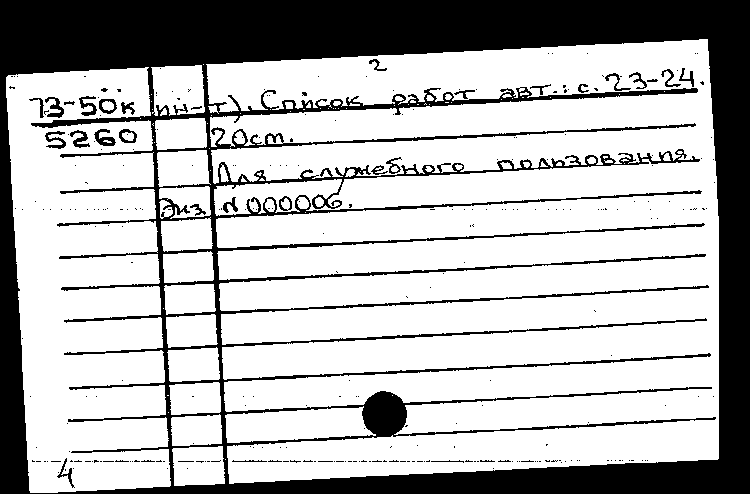 2
73-50к ин-т). Список работ авт.: с. 23-24.
5260 20см.
Для служебного пользования.
Экз. N 000006.
4